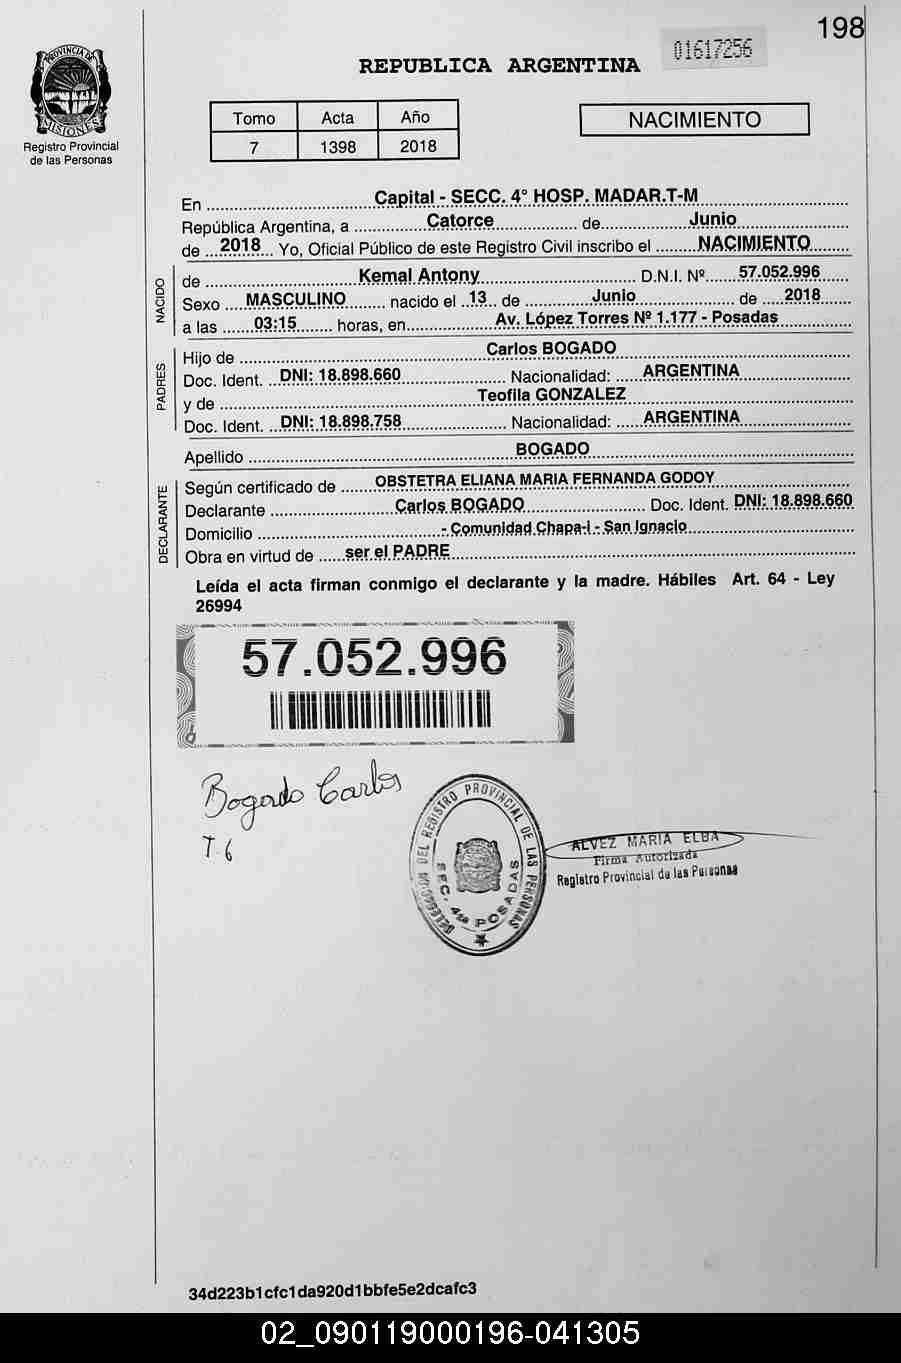 198
01617256
REPUBLICA ARGENTINA
PROVINCIA DE MISIONES
Registro Provincial
de las Personas
Tomo Acta Año
7 1398 2018
NACIMIENTO
En Capital - SECC. 4° HOSP. MADAR.T-M
República Argentina, a Catorce de Junio
de 2018 Yo, Oficial Público de este Registro Civil inscribo el NACIMIENTO
NACIDO
de Kemal Antony D.N.I. Nº 57.052.996
Sexo MASCULINO nacido el 13 de Junio de 2018
a las 03:15 horas, en Av. López Torres Nº 1.177 - Posadas
PADRES
Hijo de Carlos BOGADO
Doc. Ident. DNI: 18.898.660 Nacionalidad: ARGENTINA
y de Teofila GONZALEZ
Doc. Ident. DNI: 18.898.758 Nacionalidad: ARGENTINA
Apellido BOGADO
DECLARANTE
Según certificado de OBSTETRA ELIANA MARIA FERNANDA GODOY
Declarante Carlos BOGADO Doc. Ident. DNI: 18.898.660
Domicilio - Comunidad Chapa-i - San Ignacio
Obra en virtud de ser el PADRE
Leída el acta firman conmigo el declarante y la madre. Hábiles Art. 64 - Ley
26994
57.052.996
Bogado Carlos
T-6
DELEGACION DEL REGISTRO PROVINCIAL DE LAS PERSONAS
SEC. 4ta POSADAS
ALVEZ MARIA ELBA
Firma Autorizada
Registro Provincial de las Personas
34d223b1cfc1da920d1bbfe5e2dcafc3
02_090119000196-041305